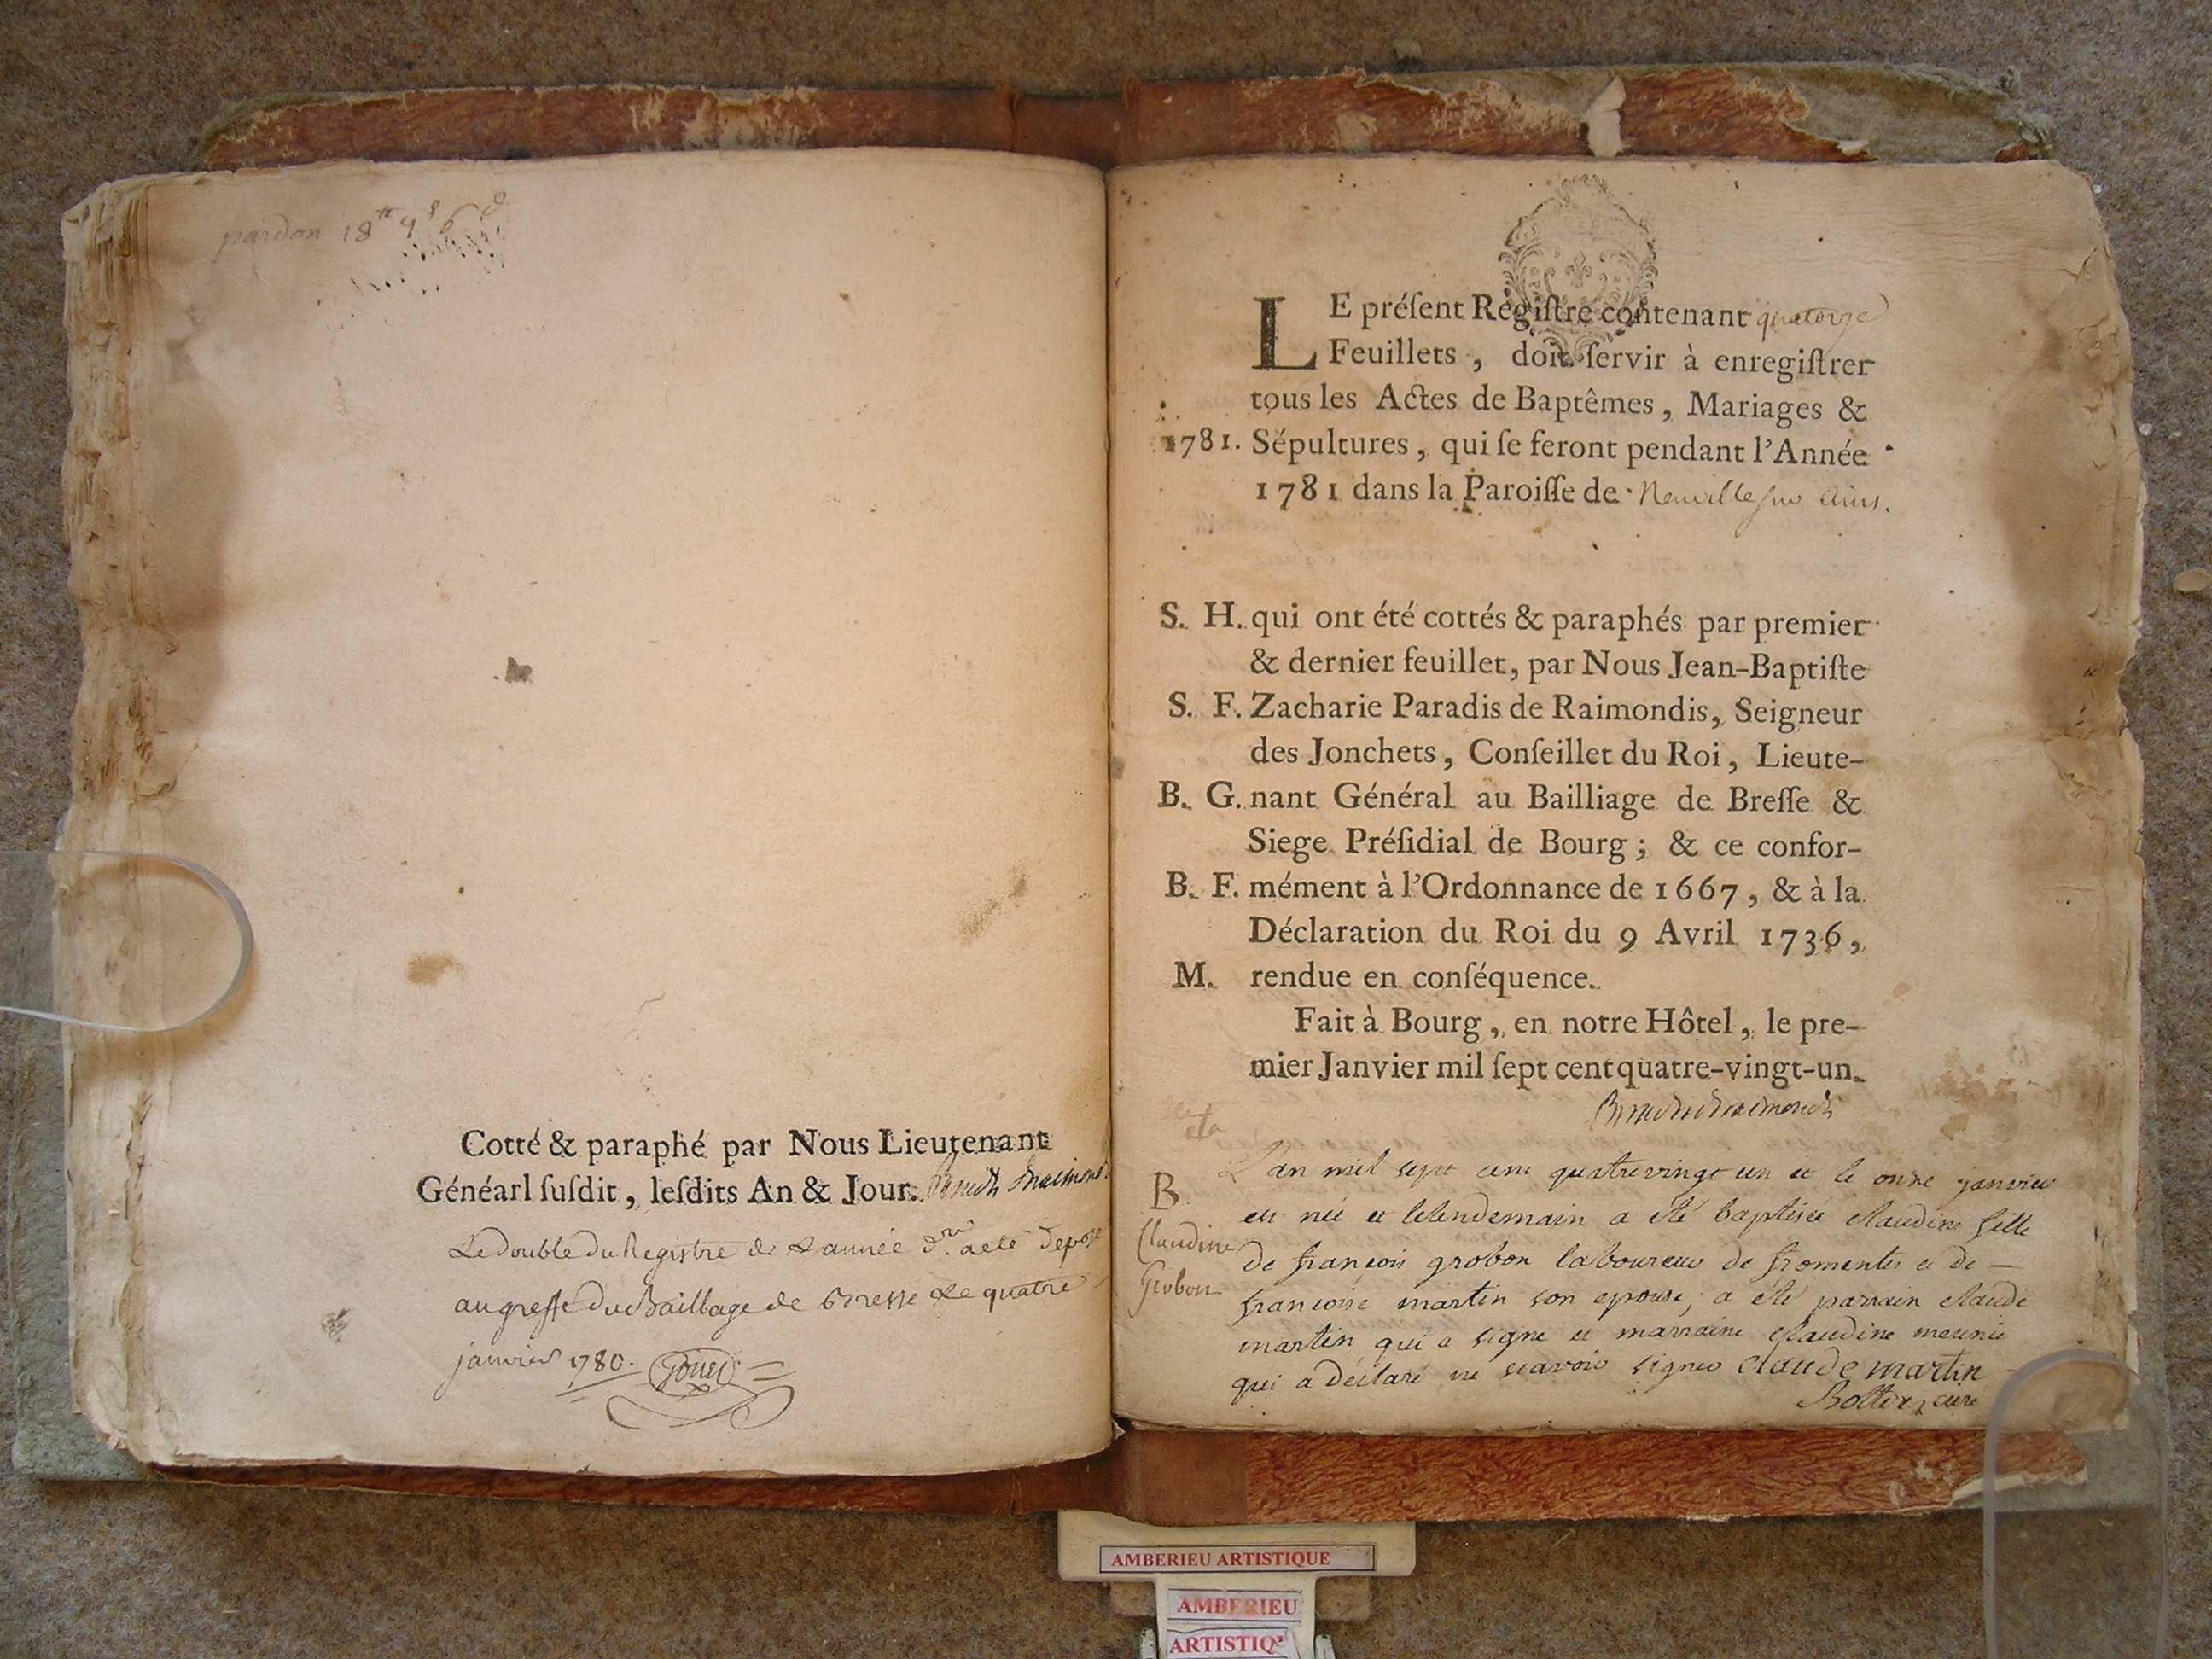 pardon 18 tt 4 s 6 d
Cotté & paraphé par Nous Lieutenant
Généarl ſuſdit, leſdits An & Jour.
Le double du Registre de l'année d.re a eté deposé
au greffe du Bailliage de Bresse le quatre
janvier 1780.
LE préſent Regiſtre contenant quatorze
Feuillets, doit ſervir à enregiſtrer
tous les Actes de Baptêmes, Mariages &
1781. Sépultures, qui ſe feront pendant l'Année
1781 dans la Paroiſſe de Neuville sur Ains.
S. H. qui ont été cottés & paraphés par premier
& dernier feuillet, par Nous Jean-Baptiſte
S. F. Zacharie Paradis de Raimondis, Seigneur
des Jonchets, Conſeillet du Roi, Lieute-
B. G. nant Général au Bailliage de Breſſe &
Siege Préſidial de Bourg; & ce confor-
B. F. mément à l'Ordonnance de 1667, & à la
Déclaration du Roi du 9 Avril 1736,
M. rendue en conſéquence.
Fait à Bourg, en notre Hôtel, le pre-
mier Janvier mil ſept cent quatre-vingt-un.
B
Claudine
Grobon
L'an mil sept cent quatrevingt un et le onze janvier
est née et lelendemain a été baptisée claudine fille
de françois grobon laboureur de fromentes et de —
francoise martin son epouse, a été parrain claude
martin qui a signé et marraine claudine meunie
qui a déclaré ne scavoir signer claude martin
curé
AMBERIEU ARTISTIQUE
AMBERIEU
ARTISTIQ